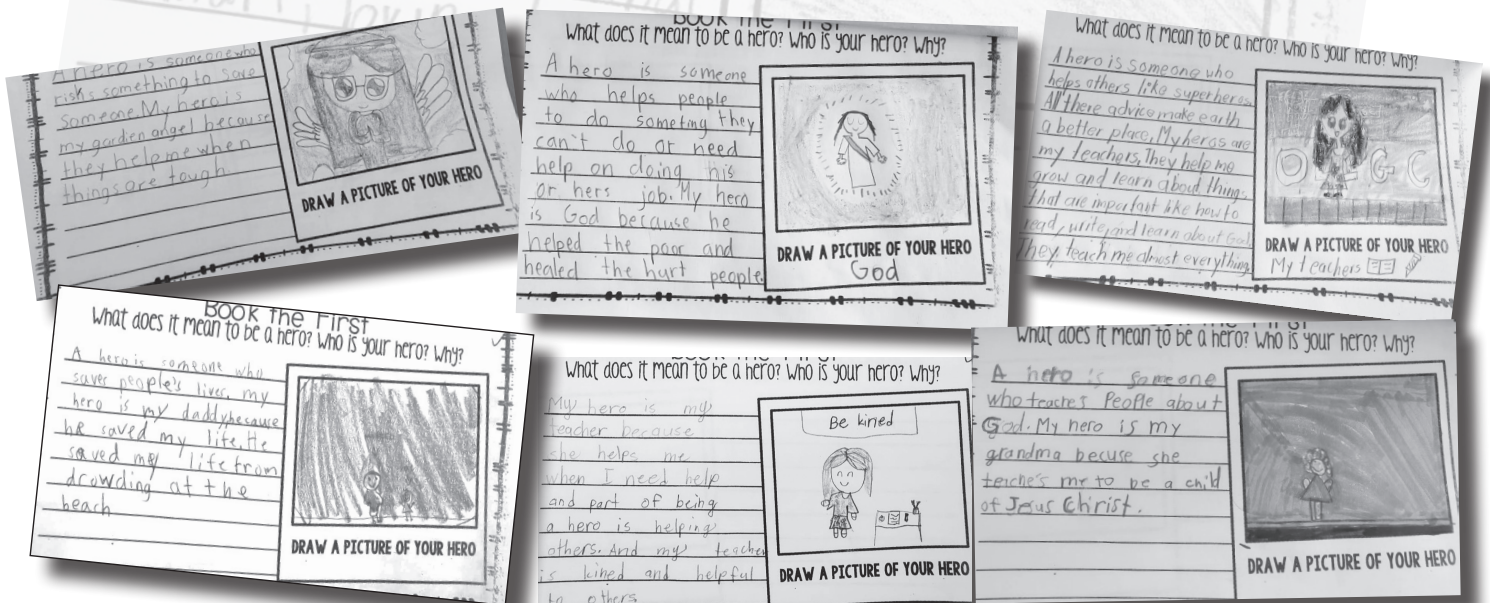 A hero is someone who
risks something to save
someone. My hero is
my garden angel because
they help me when
things are tough.
DRAW A PICTURE OF YOUR HERO
Book the First
What does it mean to be a hero? Who is your hero? Why?
A hero is someone
who helps people
to do someting they
can't do or need
help on doing his
or hers job. My hero
is God because he
helped the poor and
healed the hurt people
DRAW A PICTURE OF YOUR HERO
God
What does it mean to be a hero? Who is your hero? Why?
A hero is someone who
helps others like superheros.
All there advice make earth
a better place. My heros are
my teachers. They help me
grow and learn about things
that are important like how to
read, write, and learn about God.
They teach me almost everything
DRAW A PICTURE OF YOUR HERO
My teachers
Book the First
What does it mean to be a hero? Who is your hero? Why?
A hero is someone who
saves people's lives. my
hero is my daddy because
he saved my life. He
saved my life from
drowding at the
beach
DRAW A PICTURE OF YOUR HERO
Book the First
What does it mean to be a hero? Who is your hero? Why?
My hero is my
teacher because
she helps me
when I need help
and part of being
a hero is helping
others. And my teacher
is kined and helpful
to others
Be kined
DRAW A PICTURE OF YOUR HERO
What does it mean to be a hero? Who is your hero? Why?
A hero is someone
who teaches People about
God. My hero is my
grandma becuse she
teiche's me to be a child
of Jesus Christ.
DRAW A PICTURE OF YOUR HERO